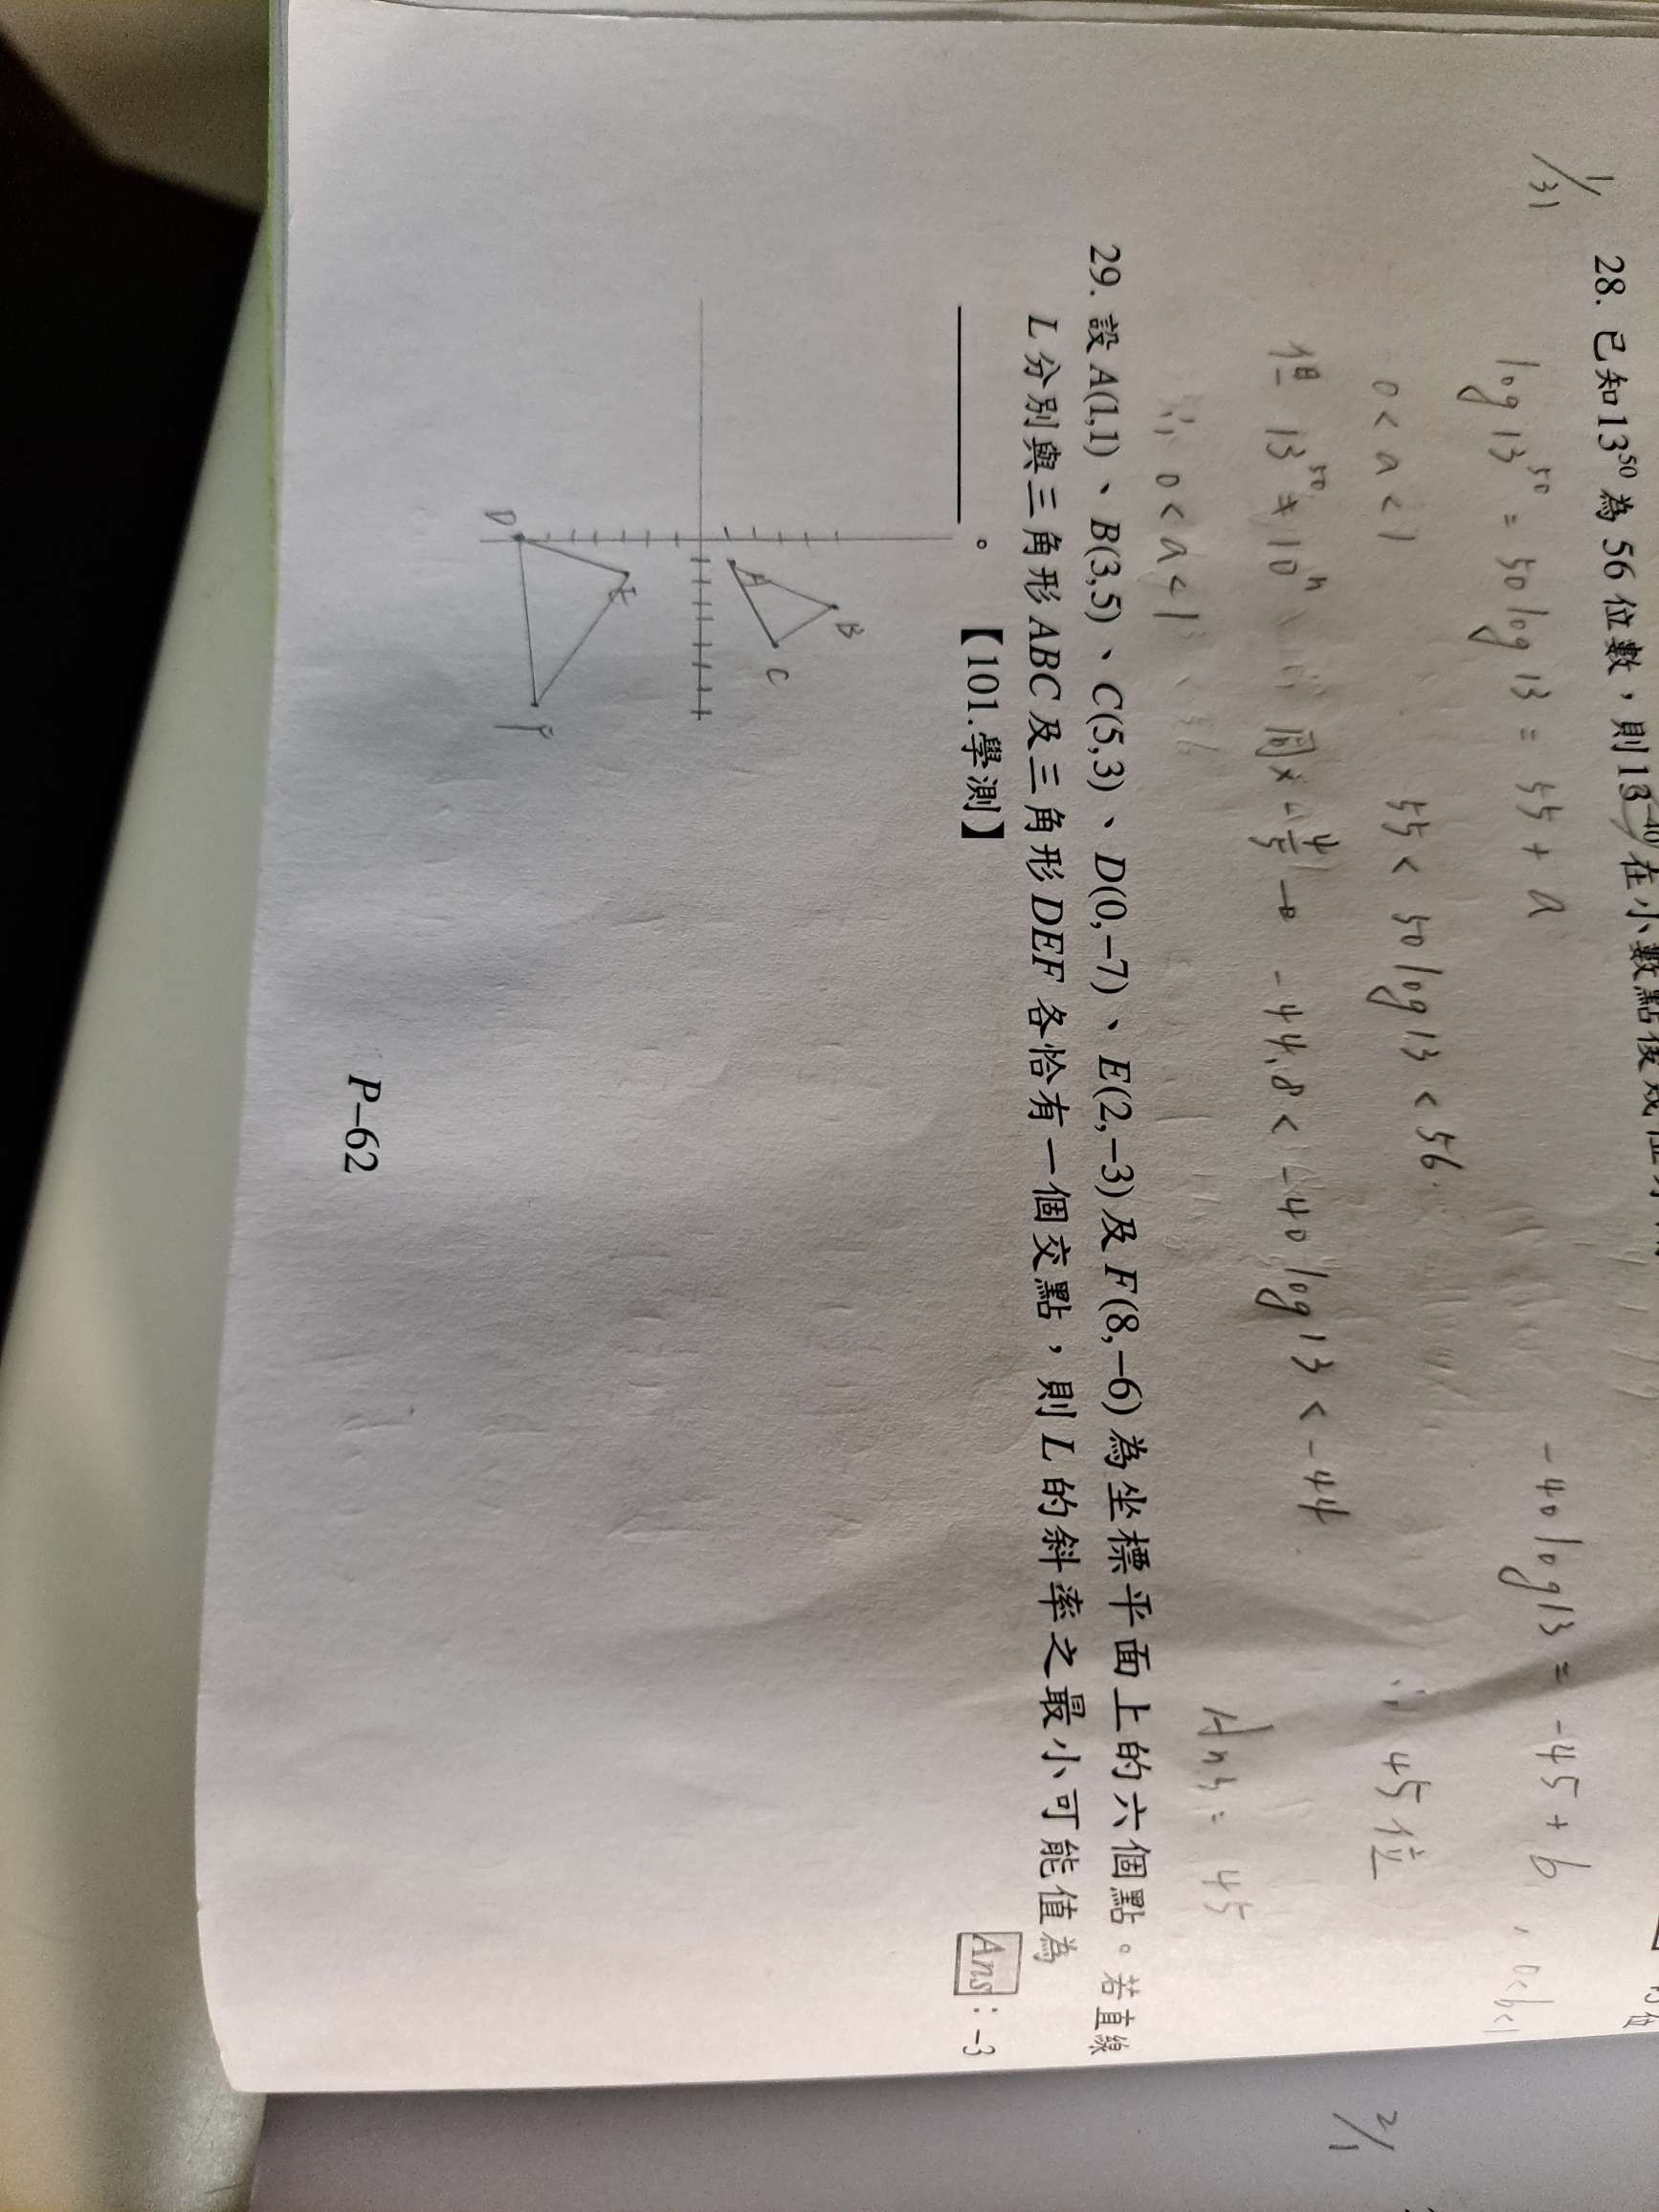 1/31
28. 已知13⁵⁰為56位數，則13⁻⁴⁰在小數點後
log 13⁵⁰ = 50 log 13 = 55 + a
-40 log 13 = -45 + b, 0<b<1
0 < a < 1
55 < 50 log 13 < 56
∴ 45位
但 13⁵⁰ ≠ 10ⁿ
同× -4/5 → -44.8 < -40 log 13 < -44
∴ 0 < a < 1
Ans: 45
29. 設A(1,1)、B(3,5)、C(5,3)、D(0,−7)、E(2,−3)及F(8,−6)為坐標平面上的六個點。若直線
L分別與三角形ABC及三角形DEF各恰有一個交點，則L的斜率之最小可能值為
________。 【101.學測】
Ans : -3
B
A
C
E
D
F
P–62
2/1